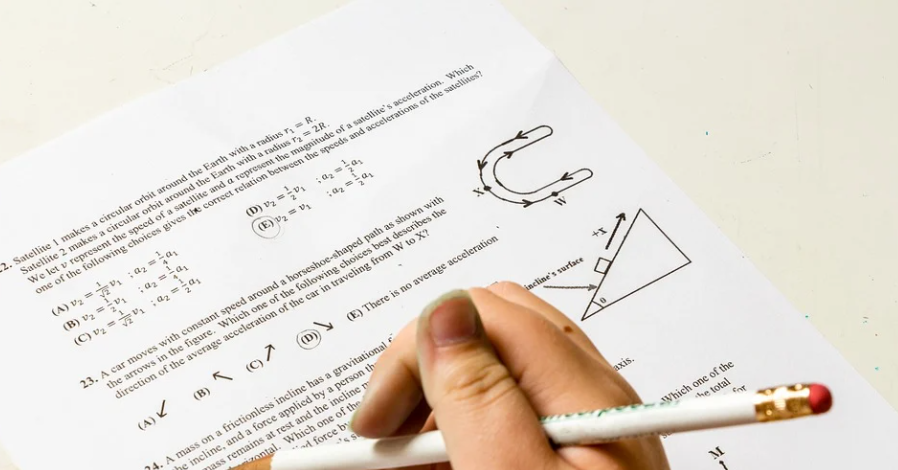 2. Satellite 1 makes a circular orbit around the Earth with a radius r₁ = R.
Satellite 2 makes a circular orbit around the Earth with a radius r₂ = 2R.
We let v represent the speed of a satellite and a represent the magnitude of a satellite's acceleration. Which
one of the following choices gives the correct relation between the speeds and accelerations of the satellites?
(A) v₂ = 1/√2 v₁ ; a₂ = 1/4 a₁
(B) v₂ = 1/2 v₁ ; a₂ = 1/4 a₁
(C) v₂ = 1/√2 v₁ ; a₂ = 1/2 a₁
(D) v₂ = 1/2 v₁ ; a₂ = 1/2 a₁
(E) v₂ = v₁ ; a₂ = 1/4 a₁
23. A car moves with constant speed around a horseshoe-shaped path as shown with
the arrows in the figure. Which one of the following choices best describes the
direction of the average acceleration of the car in traveling from W to X?
(A) ↙ (B) ↖ (C) ↗ (D) ↘ (E) There is no average acceleration
X
W
24. A mass on a frictionless incline has a gravitational
the incline, and a force applied by a person
mass remains at rest and the incline
Which one of the
force
axis.
Which one of the
the total
for
+x
incline's surface
θ
M